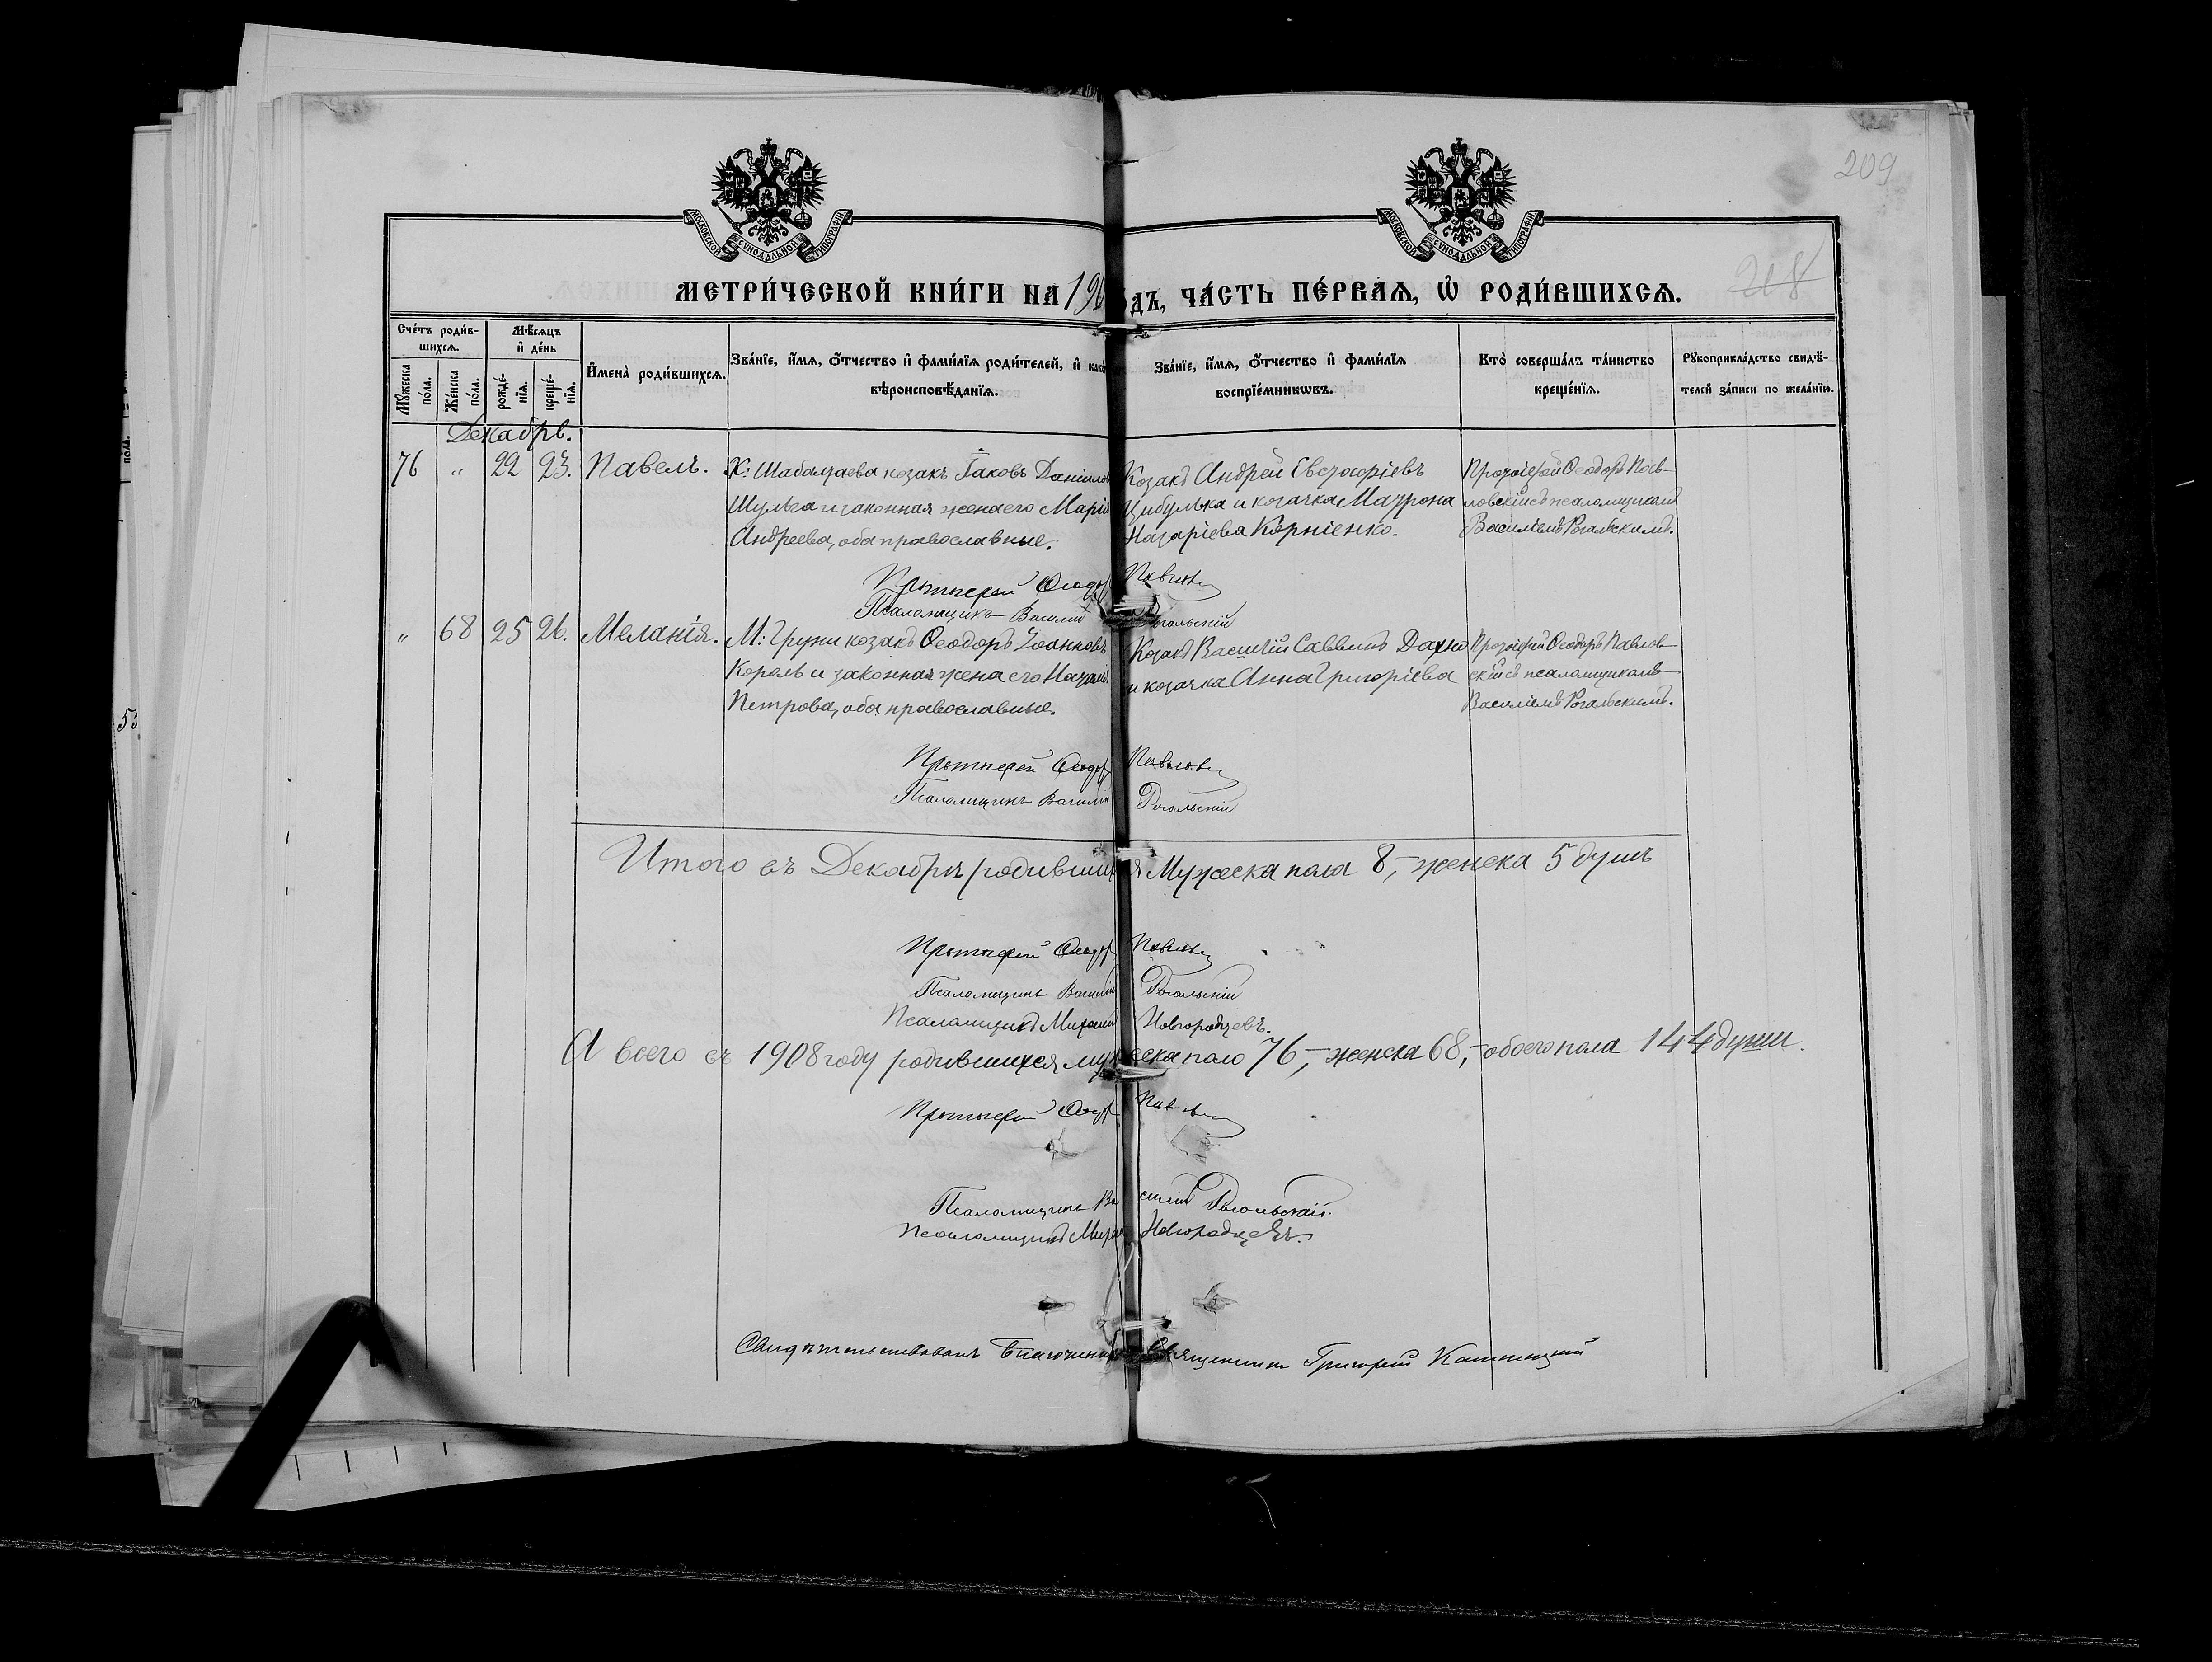 209
МОСКОВСКОЙ СѴНОДАЛЬНОЙ ТИПОГРАФІИ
МОСКОВСКОЙ СѴНОДАЛЬНОЙ ТИПОГРАФІИ
218
МЕТРИ́ЧЕСКОЙ КНИ́ГИ НА 190
дъ, ЧА́СТЬ ПЕ́РВАѦ, Ѡ҆ РОДИ́ВШИХСѦ.
Сче́тъ роди́в-
шихсѧ.
Мꙋ́жеска по́ла.
Же́нска по́ла.
Мѣ́сѧцъ
и҆ де́нь
рожде́-
нїѧ.
креще́-
нїѧ.
И҆мена̀ роди́вшихсѧ.
Зва́нїе, и҆́мѧ, ѻ҆́тчество и҆ фами́лїѧ роди́телей, и҆ как
вѣроисповѣ́данїѧ.
Зва́нїе, и҆́мѧ, ѻ҆́тчество и҆ фами́лїѧ
воспрїе́мникѡвъ.
Кто̀ соверша́лъ та́инство
креще́нїѧ.
Рꙋкоприкла́дство свидѣ́-
телей за́писи по жела́нїю.
Декабрь.
76 " 22 23. Павелъ.
Х: Шабалтаева козакъ Іаковъ Даніилов
Шульга и законная жена его Марія
Андреева, оба православные.
Козакъ Андрей Евстафіевъ
Цибулька и козачка Матрона
Назаріева Корніенко.
Протоіерей Ѳеодоръ Пав-
ловскій съ псаломщикомъ
Василіемъ Рогальскимъ.
Протоіерей Ѳеодор Павловс
Псаломщикъ Василій Рогальскій
" 68 25 26. Меланія.
М: Груни козакъ Ѳеодоръ Іоанновъ
Король и законная жена его Наталія
Петрова, оба православные.
Козакъ Василій Саввинъ Дахно
и козачка Анна Григоріева
Протоіерей Ѳеодоръ Павлов-
скій съ псаломщикомъ
Василіемъ Рогальскимъ.
Протоіерей Ѳеодор Павловс
Псаломщикъ Василій Рогальскій
Итого въ Декабрѣ родившихся Мужеска пола 8, – женска 5 душъ
Протоіерей Ѳеодор Павловс
Псаломщикъ Василій Рогальскій
Псаломщикъ Михаилъ Новгородцевъ.
А всего въ 1908 году родившихся мужеска пола 76, – женска 68, – обоего пола 144 души.
Протоіерей Ѳеодор Павловс
Псаломщикъ Василій Рогальскій.
Псаломщикъ Михаилъ Новгородцевъ.
Свидѣтельствовалъ Благочинный Священникъ Григорій